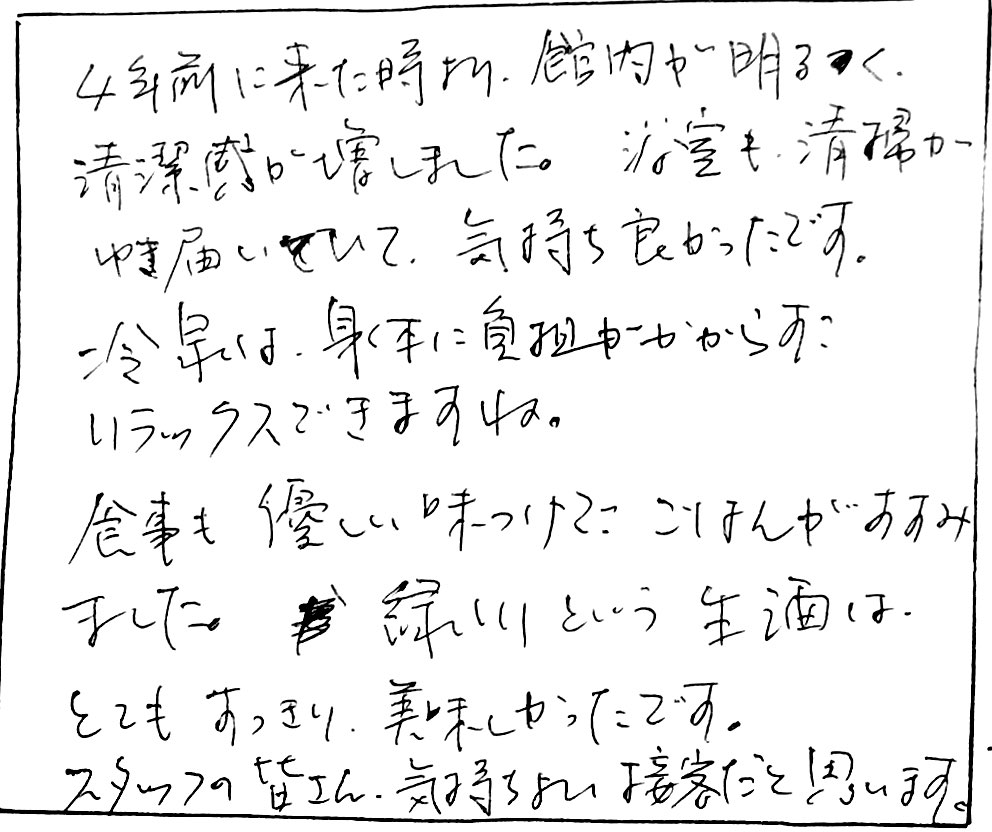 4年前に来た時より、館内が明るく、
清潔感が増しました。 浴室も、清掃が
ゆき届いていて、気持ち良かったです。
冷泉は、身体に負担がかからずに
リラックスできますね。
食事も 優しい味つけで、ごはんがすすみ
ました。 緑川という 生酒は、
とても すっきり、美味しかったです。
スタッフの皆さん、気持ちよい接客だと思います。